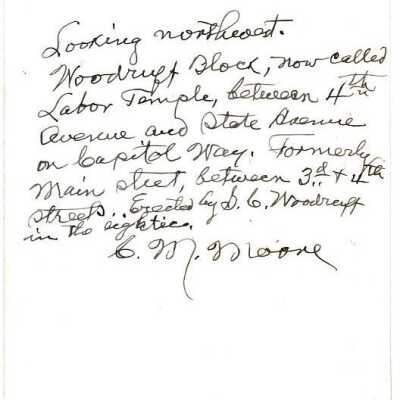 Looking northwest.
Woodruff Block, now called
Labor Temple, between 4th
Avenue and State Avenue
on Capitol Way. Formerly
Main street, between 3rd & 4th
streets.. Erected by S. C. Woodruff
in the eighties.
C. M. Moore